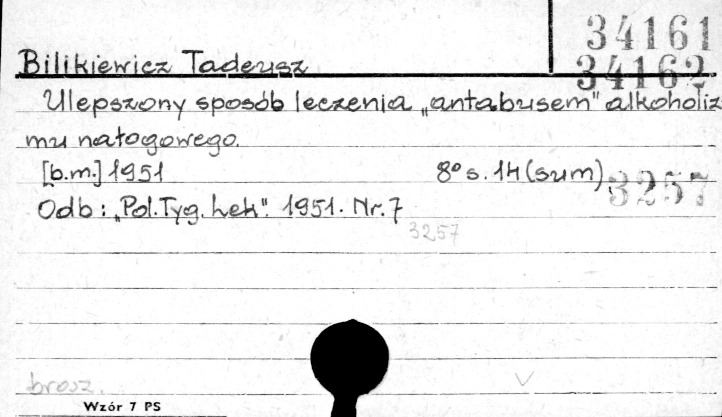 34161
Bilikiewicz Tadeusz 34162
Ulepszony sposób leczenia „antabusem" alkoholiz
mu nałogowego.
[b.m.] 1951 8° s. 14 (sum) 3257
Odb: „Pol. Tyg. Lek". 1951. Nr. 7
3257
brosz.
Wzór 7 PS